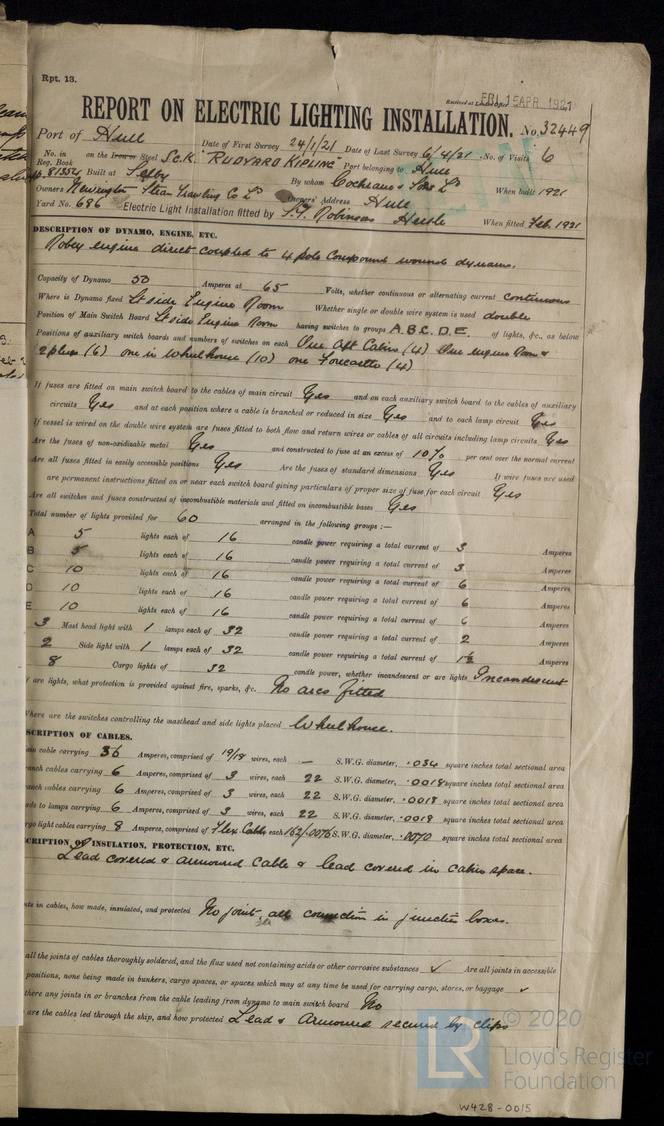 Rpt. 13.
Received at London Office FRI. 15 APR. 1921
REPORT ON ELECTRIC LIGHTING INSTALLATION. No. 32449
Port of Hull Date of First Survey 24/1/21 Date of Last Survey 6/4/21 No. of Visits 6
No. in Reg. Book 81354 on the Iron or Steel S.C.K. "RUDYARD KIPLING" Port belonging to Hull
Built at Selby By whom Cochrane & Sons Ld When built 1921
Owners Newington Steam Trawling Co Ld Owners' Address Hull
Yard No. 686 Electric Light Installation fitted by Robinson Hessle When fitted Feb. 1921
DESCRIPTION OF DYNAMO, ENGINE, ETC.
Robey engine direct coupled to 4 pole Compound wound dynamo.
Capacity of Dynamo 50 Amperes at 65 Volts, whether continuous or alternating current continuous
Where is Dynamo fixed St side Engine Room Whether single or double wire system is used double
Position of Main Switch Board St side Engine Room having switches to groups A.B.C.D.E. of lights, &c., as below
Positions of auxiliary switch boards and numbers of switches on each One Aft Cabin (4) One engine room &
(6) one in wheelhouse (10) one Forecastle (4)
If fuses are fitted on main switch board to the cables of main circuit Yes and on each auxiliary switch board to the cables of auxiliary
circuits Yes and at each position where a cable is branched or reduced in size Yes and to each lamp circuit Yes
If vessel is wired on the double wire system are fuses fitted to both flow and return wires or cables of all circuits including lamp circuits Yes
Are the fuses of non-oxidisable metal Yes and constructed to fuse at an excess of 10% per cent over the normal current
Are all fuses fitted in easily accessible positions Yes Are the fuses of standard dimensions Yes If wire fuses are used
are permanent instructions fitted on or near each switch board giving particulars of proper size of fuse for each circuit Yes
Are all switches and fuses constructed of incombustible materials and fitted on incombustible bases Yes
Total number of lights provided for 60 arranged in the following groups :—
A 5 lights each of 16 candle power requiring a total current of 3 Amperes
B 5 lights each of 16 candle power requiring a total current of 3 Amperes
C 10 lights each of 16 candle power requiring a total current of 6 Amperes
D 10 lights each of 16 candle power requiring a total current of 6 Amperes
E 10 lights each of 16 candle power requiring a total current of 6 Amperes
3 Mast head light with 1 lamps each of 32 candle power requiring a total current of 2 Amperes
2 Side light with 1 lamps each of 32 candle power requiring a total current of Amperes
8 Cargo lights of 32 candle power, whether incandescent or arc lights Incandescent
f arc lights, what protection is provided against fire, sparks, &c. No arcs fitted
Where are the switches controlling the masthead and side lights placed Wheelhouse.
SCRIPTION OF CABLES.
ain cable carrying 36 Amperes, comprised of 19/18 wires, each — S.W.G. diameter, .034 square inches total sectional area
anch cables carrying 6 Amperes, comprised of 3 wires, each 22 S.W.G. diameter, .0018 square inches total sectional area
anch cables carrying 6 Amperes, comprised of 3 wires, each 22 S.W.G. diameter, .0018 square inches total sectional area
ads to lamps carrying 6 Amperes, comprised of 3 wires, each 22 S.W.G. diameter, .0018 square inches total sectional area
rgo light cables carrying 8 Amperes, comprised of Flex Cable each 162/.0076 S.W.G. diameter, .0070 square inches total sectional area
SCRIPTION OF INSULATION, PROTECTION, ETC.
Lead covered & armoured Cable & lead covered in cabin space.
nts in cables, how made, insulated, and protected No joint, all connection in junction boxes.
all the joints of cables thoroughly soldered, and the flux used not containing acids or other corrosive substances ✓ Are all joints in accessible
positions, none being made in bunkers, cargo spaces, or spaces which may at any time be used for carrying cargo, stores, or baggage ✓
there any joints in or branches from the cable leading from dynamo to main switch board No
are the cables led through the ship, and how protected Lead & Armoured secured by clips
© 2020
LR Lloyd's Register
Foundation
W428-0015